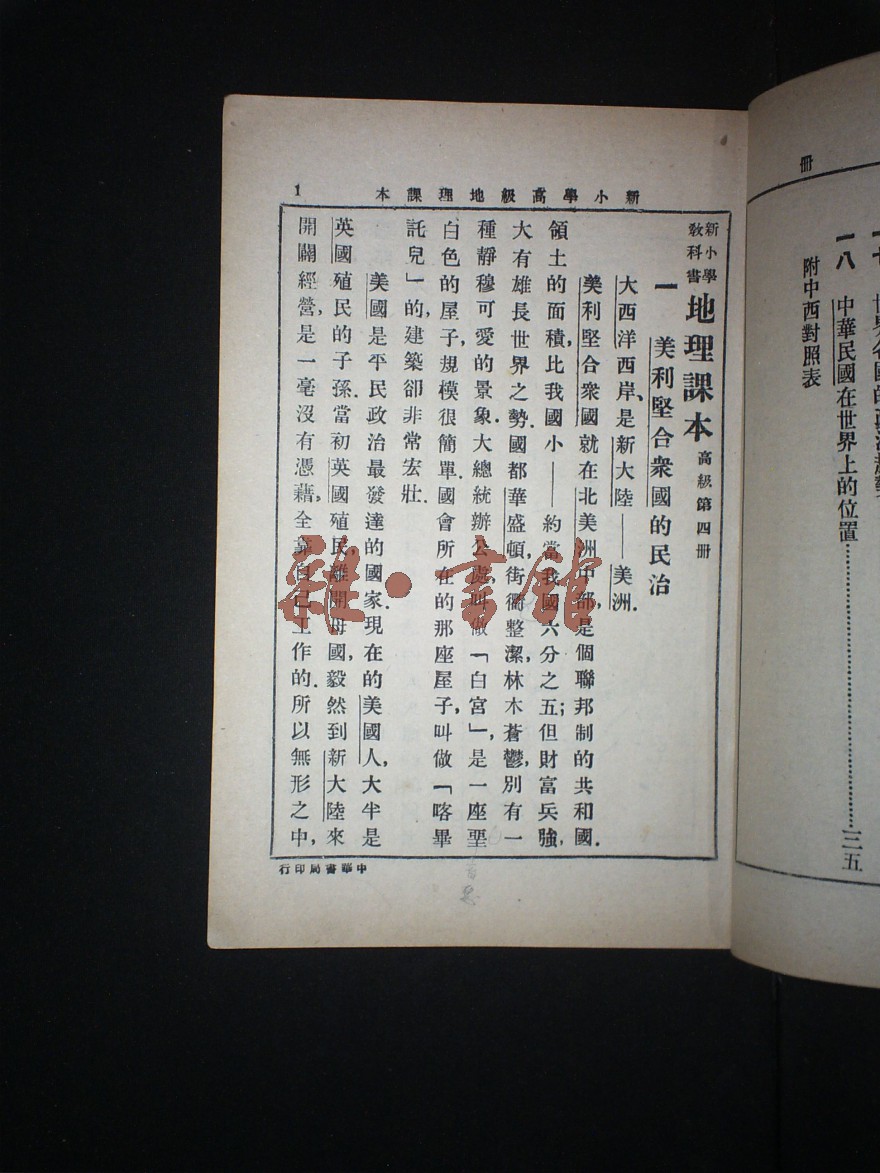 冊
一八　中華民國在世界上的位置……………………三五
附中西對照表
新小學高級地理課本
1
新小學
教科書
地理課本　高級第四冊
一　美利堅合衆國的民治
大西洋西岸、是新大陸——美洲.
美利堅合衆國就在北美洲中部,是個聯邦制的共和國.
領土的面積,比我國小——約當我國六分之五;但財富兵強,
大有雄長世界之勢.國都華盛頓,街衢整潔,林木蒼鬱,別有一
種靜穆可愛的景象.大總統辦公處,叫做「白宮」,是一座堊
白色的屋子,規模很簡單.國會所在的那座屋子,叫做「喀畢
託兒」的,建築卻非常宏壯.
美國是平民政治最發達的國家.現在的美國人,大半是
英國殖民的子孫.當初英國殖民,離開母國,毅然到新大陸來
開闢經營,是一毫沒有憑藉,全靠自己工作的.所以無形之中,
中華書局印行
雜·書館